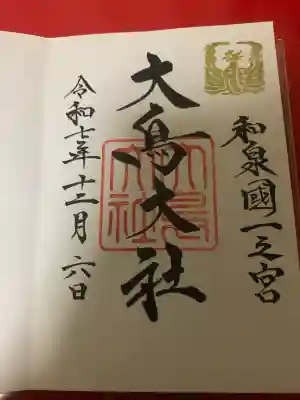 和泉國一之宮
大鳥大社
令和七年十二月六日
大鳥大社